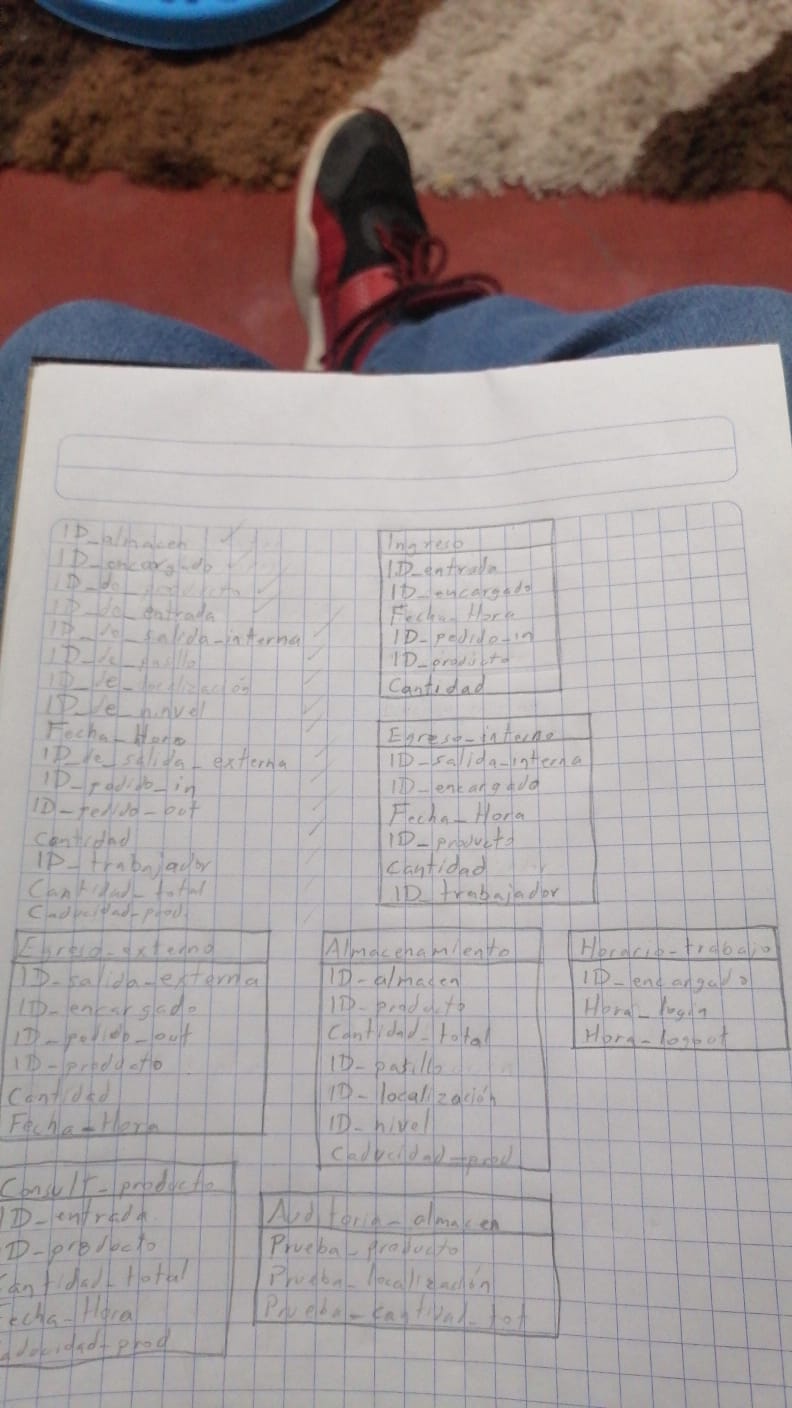 ID_almacen
ID_encargado
ID_de_producto
ID_de_entrada
ID_de_salida_interna
ID_de_pasillo
ID_de_localización
ID_de_ninvel
Fecha_Hora
ID_de_salida_externa
ID_pedido_in
ID_pedido_out
Cantidad
ID_trabajador
Cantidad_total
Caducidad_prod.
Ingreso
ID_entrada
ID_encargado
Fecha_Hora
ID_pedido_in
ID_producto
Cantidad
Egreso_interno
ID_salida_interna
ID_encargado
Fecha_Hora
ID_producto
Cantidad
ID_trabajador
Egreso_externo
ID_salida_externa
ID_encargado
ID_pedido_out
ID_producto
Cantidad
Fecha_Hora
Almacenamiento
ID_almacen
ID_producto
Cantidad_total
ID_pasillo
ID_localización
ID_nivel
Caducidad_prod
Horario_trabajo
ID_encargado
Hora_login
Hora_logout
Consult_producto
ID_entrada
ID_producto
Cantidad_total
Fecha_Hora
Caducidad_prod
Auditoria_almacen
Prueba_producto
Prueba_localización
Prueba_cantidad_tot